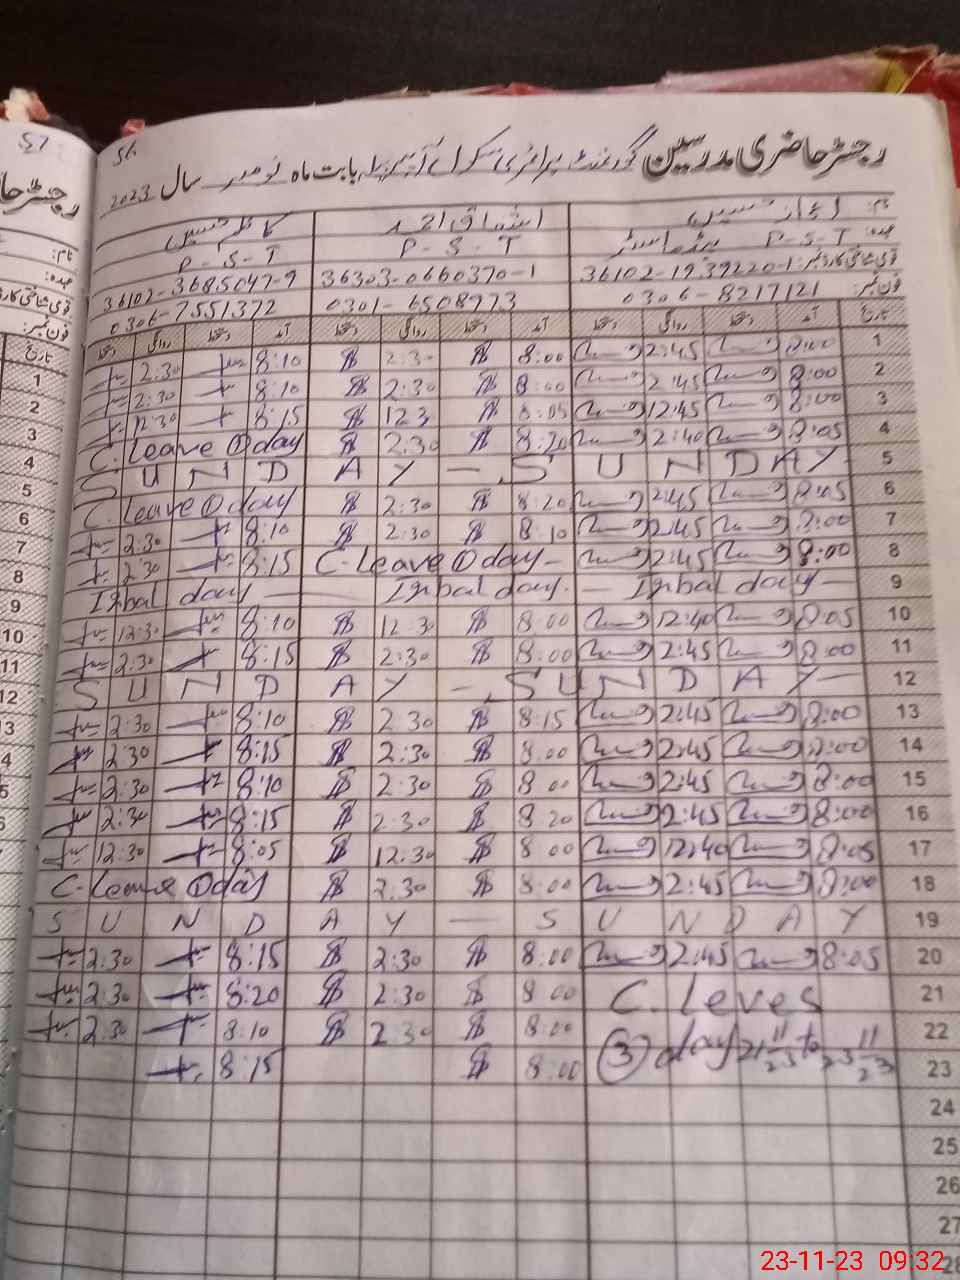 56
57
رجسٹر حاضری مدرسین گورنمنٹ پرائمری سکول بابت ماہ نومبر سال 2023
نام: اعجاز حسین اشتیاق احمد کاظم حسین
عہدہ: P-S-T ہیڈ ماسٹر P-S-T P-S-T
قومی شناختی کارڈ نمبر: 36102-1939220-1 36303-0660370-1 36102-3685047-9
فون نمبر: 0306-8217121 0301-6508973 0306-7551372
تاریخ آمد دستخط روانگی دستخط آمد دستخط روانگی دستخط آمد دستخط روانگی دستخط
1 8:00 2:45 8:00 2:30 8:10 2:30
2 8:00 2:45 8:00 2:30 8:10 2:30
3 8:00 12:45 8:05 12:3 8:15 12:30
4 8:05 2:40 8:20 2:30 C. Leave ① day
5 SUNDAY — SUNDAY
6 8:05 2:45 8:20 2:30 C. Leave ① day
7 8:00 2:45 8:10 2:30 8:10 2:30
8 8:00 2:45 C. Leave ① day - 8:15 2:30
9 Iqbal day — Iqbal day. — Iqbal day —
10 8:05 12:40 8:00 12:30 8:10 12:30
11 8:00 2:45 8:00 2:30 8:15 2:30
12 SUNDAY — SUNDAY —
13 8:00 2:45 8:15 2:30 8:10 2:30
14 8:00 2:45 8:00 2:30 8:15 2:30
15 8:00 2:45 8:00 2:30 8:10 2:30
16 8:00 2:45 8:20 2:30 8:15 2:30
17 8:05 12:40 8:00 12:30 8:05 12:30
18 8:00 2:45 8:00 2:30 C. Leave ① day
19 SUNDAY — SUNDAY
20 8:05 2:45 8:00 2:30 8:15 2:30
21 C. Leves 8:00 2:30 8:20 2:30
22 8:00 2:30 8:10 2:30
23 ③ day 21 11/23 to 23 11/23 8:00 8:15
24
25
26
27
28
23-11-23 09:32